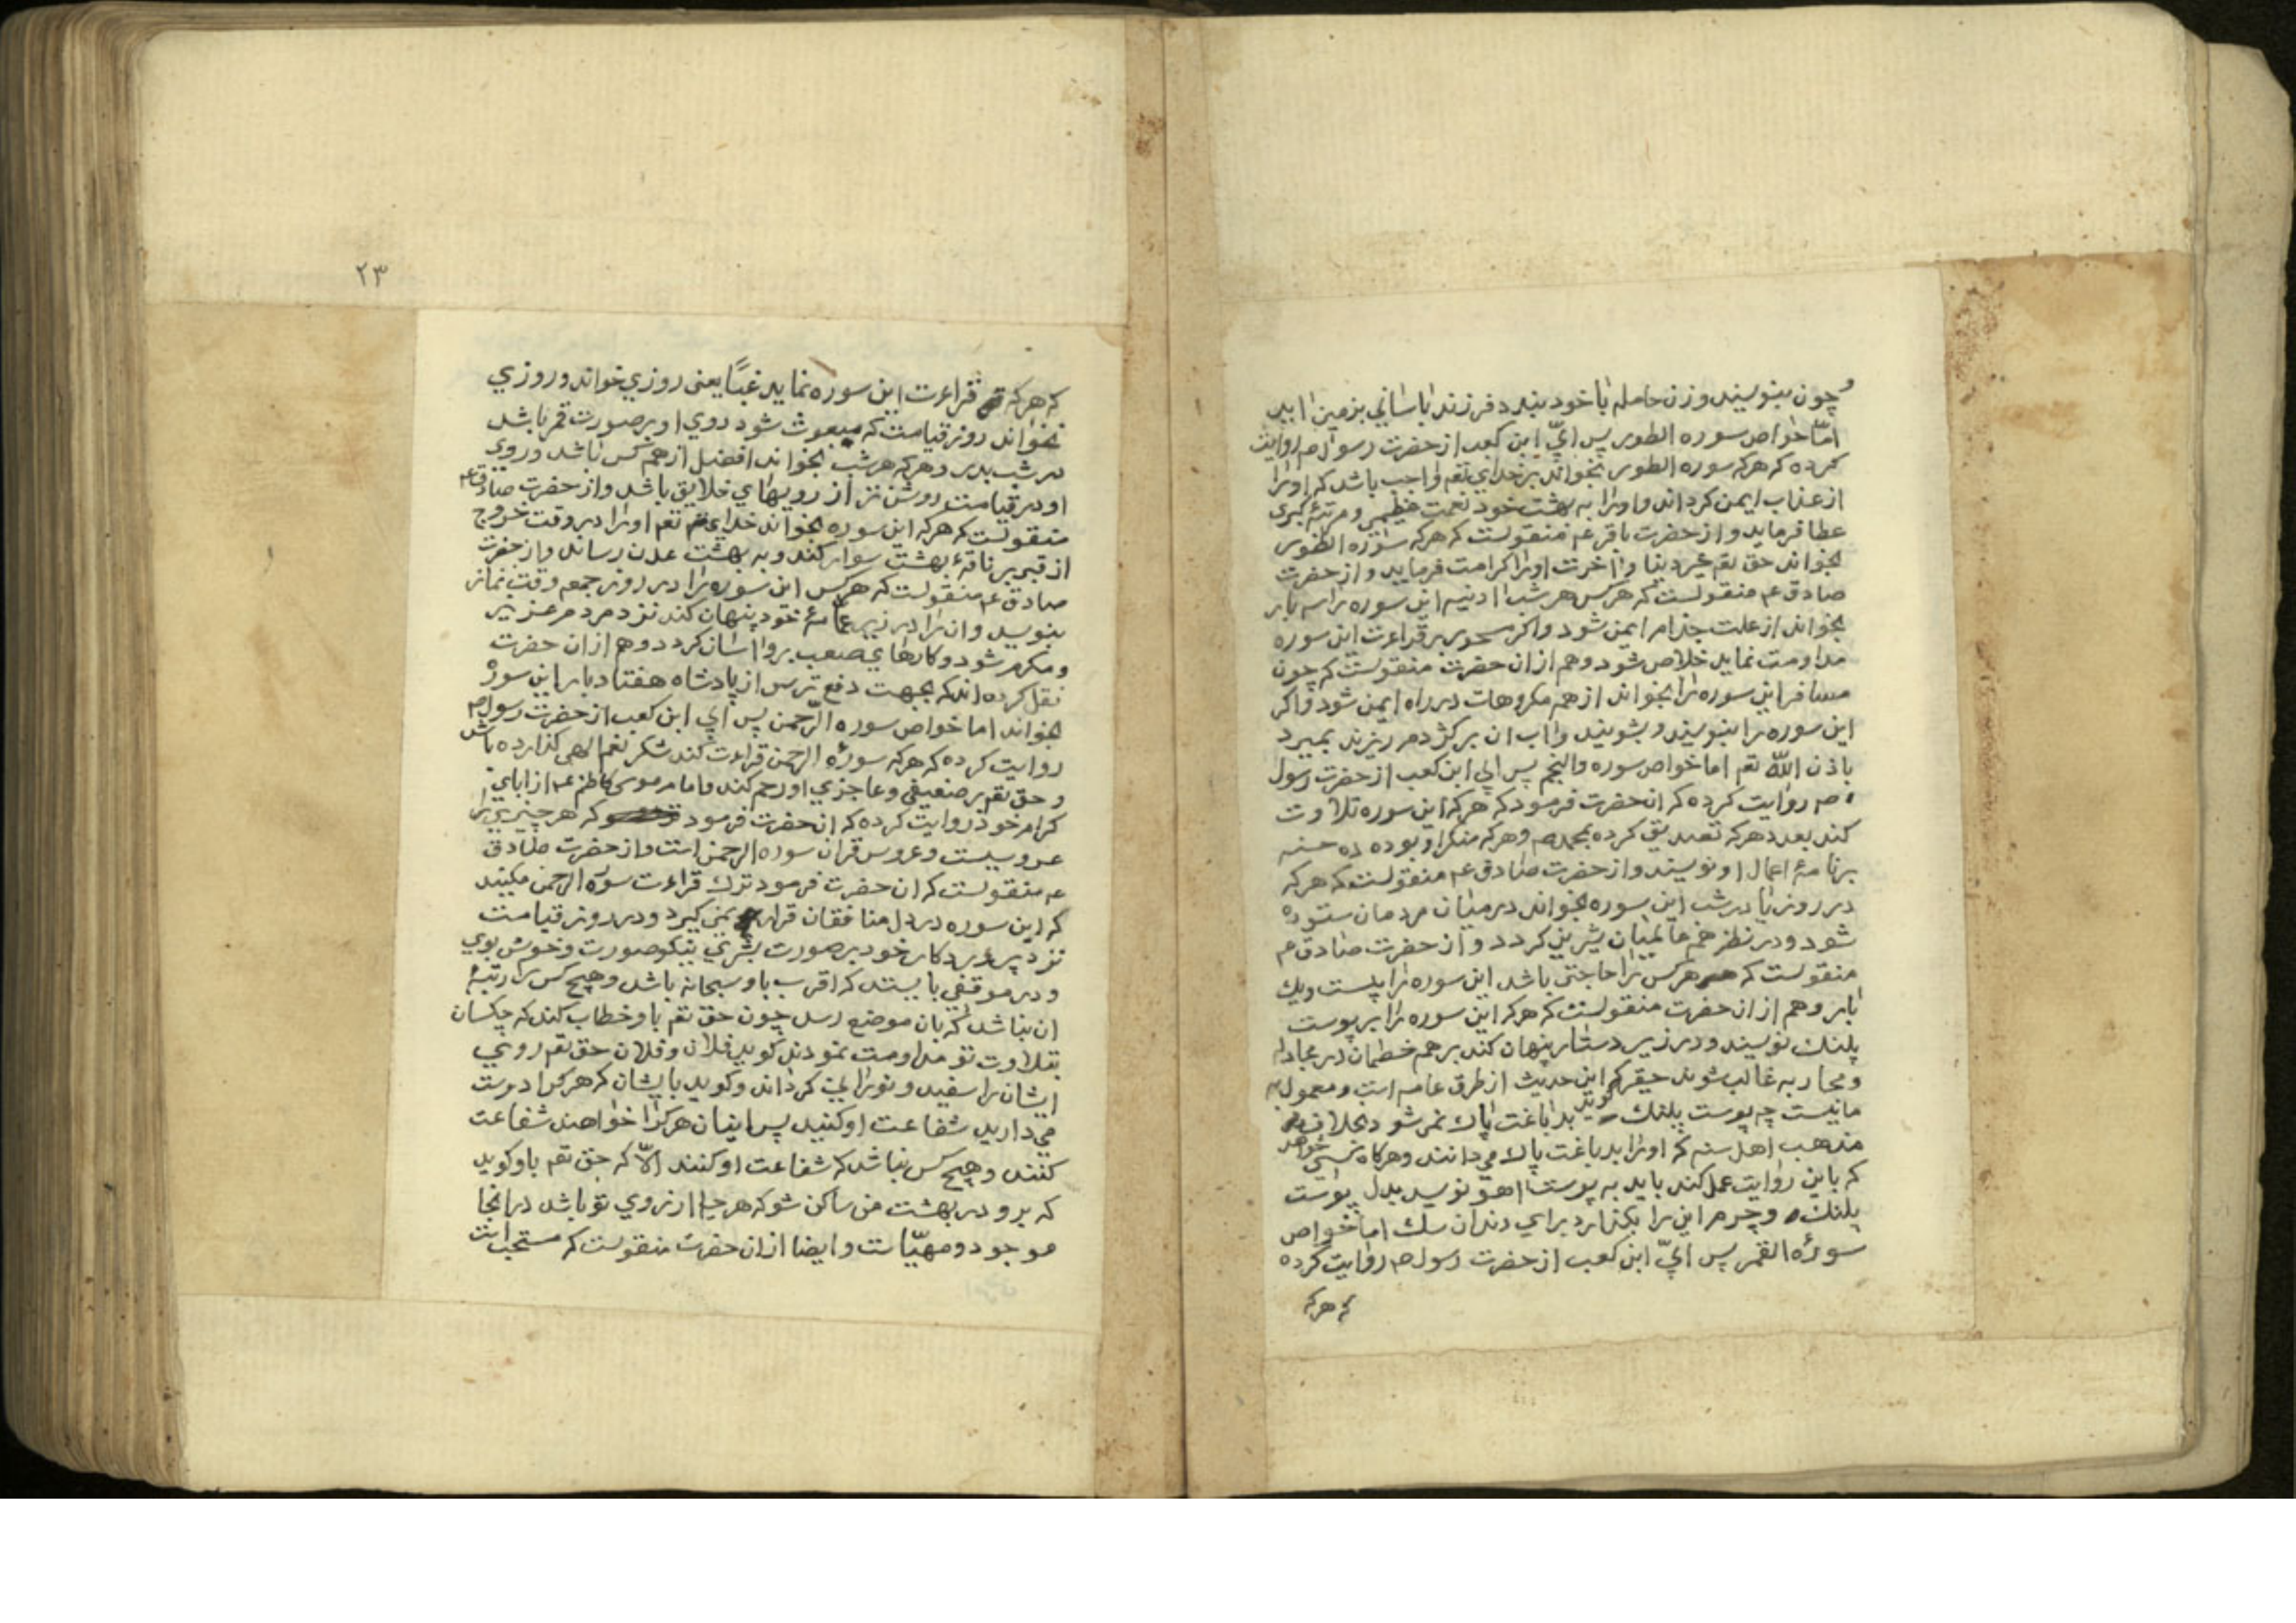 و چون بنویسند و زن حامله با خود بندد فرزند باسانی بزمین اید
امّا خواص سوره الطور پس ابیّ ابن کعب از حضرت رسول صم روایت
کرده که هرکه سوره الطور بخواند بر خدای تعم واجب باشد که اورا
از عذاب ایمن کرداند و اورا به بهشت خود نعمت عظیمی و مرتبهٔ کبری
عطا فرماید و از حضرت باقر عم منقولست که هرکه سوره الطور
بخواند حق تعم خیر دنیا و اخرت اورا کرامت فرماید و از حضرت
صادق عم منقولست که هرکس هر شب ادینه این سوره را سه بار
بخواند از علت جذام ایمن شود و اکر بر قراءت این سوره
مداومت نماید خلاص شود و هم از ان حضرت منقولست که چون
مسافر این سوره را بخواند از همه مکروهات در راه ایمن شود و اکر
این سوره را بنویسند و بشویند و اب ان بر کژدم ریزند بمیرد
باذن اللّه تعم اما خواص سوره والنجم پس ابی ابن کعب از حضرت رسول
صم روایت کرده که ان حضرت فرمود که هرکه این سوره تلاوت
کند بعدد هرکه تصدیق کرده بمحمد صم و هرکه منکر او بوده ده حسنه
بر نامهٔ اعمال او نویسند و از حضرت صادق عم منقولست که هرکه
در روز یا در شب این سوره بخواند در میان مردمان ستوده
شود و در نظر همه عالمیان شیرین کردد و از حضرت صادق عم
منقولست که هرکس را حاجتی باشد این سوره را بیست و یک
بار و هم از ان حضرت منقولست که هرکه این سوره را بر پوست
پلنک نویسند و در زیر دستار پنهان کند بر همه خصمان در مجادله
و محاربه غالب شوند حقیر کوید که این حدیث از طرق عامه است و معمول به
ما نیست چه پوست پلنک بدباغت پاک نمی شود بخلاف
مذهب اهل سنه که اورا بدباغت پاک می دانند و هرکاه کسی خواهد
که باین روایت عمل کند باید به پوست اهو نویسد بدل پوست
پلنک و چرم این را بکذارد برای دندان سک اما خواص
سورهٔ القمر پس ابیّ ابن کعب از حضرت رسول صم روایت کرده
که هرکه
۲۳
که هرکه قراءت این سوره نماید غبًّا یعنی روزی خواند و روزی
نخواند روز قیامت که مبعوث شود روی او بر صورت قمر باشد
در شب بدر و هرکه هر شب بخواند افضل از همه کس باشد و روی
او در قیامت روشن تر از رویهای خلایق باشد و از حضرت صادق عم
منقولست که هرکه این سوره بخواند خدای تعم اورا در وقت خروج
از قبر بر ناقهٔ بهشت سوار کند و به بهشت عدن رساند و از حضرت
صادق عم منقولست که هرکس این سوره را در روز جمعه وقت نماز
بنویسد و ان را در زیر عمّامهٔ خود پنهان کند نزد مردم عزیز
و مکرم شود و کارهای صعب برو اسان کردد و هم از ان حضرت
نقل کرده اند که بجهت دفع ترس از پادشاه هفتاد بار این سوره
بخواند اما خواص سوره الرّحمن پس ابی ابن کعب از حضرت رسول صم
روایت کرده که هرکه سورهٔ الرحمن قراءت کند شکر نعم الهی کذارده باشد
و حق تعم بر ضعیفی و عاجزی او رحم کند و امام موسی کاظم عم از ابای
کرام خود روایت کرده که ان حضرت فرمود که هر چیزی را
عروسیست و عروس قران سوره الرحمن است و از حضرت صادق
عم منقولست که ان حضرت فرمود ترک قراءت سورهٔ الرحمن مکنید
که این سوره در دل منافقان قرار نمی کیرد و در روز قیامت
نزد پروردکار خود بر صورت بشری نیکو صورت و خوش بوی
و در موقفی بایستد که اقرب باو سبحانه باشد و هیچ کس را رتبهٔ
ان نباشد که بان موضع رسد چون حق تعم باو خطاب کند که چه کسان
بتلاوت تو مداومت نمودند کوید فلان و فلان حق تعم روی
ایشان را سفید و نورانی کرداند و کوید بایشان که هرکرا دوست
می دارید شفاعت او کنید پس ایشان هرکرا خواهند شفاعت
کنند و هیچ کس نباشد که شفاعت او کنند الّا که حق تعم باو کوید
که برو در بهشت من ساکن شو که هرچه ارزوی تو باشد در انجا
موجود و مهیّاست و ایضا از ان حضرت منقولست که مستحب است